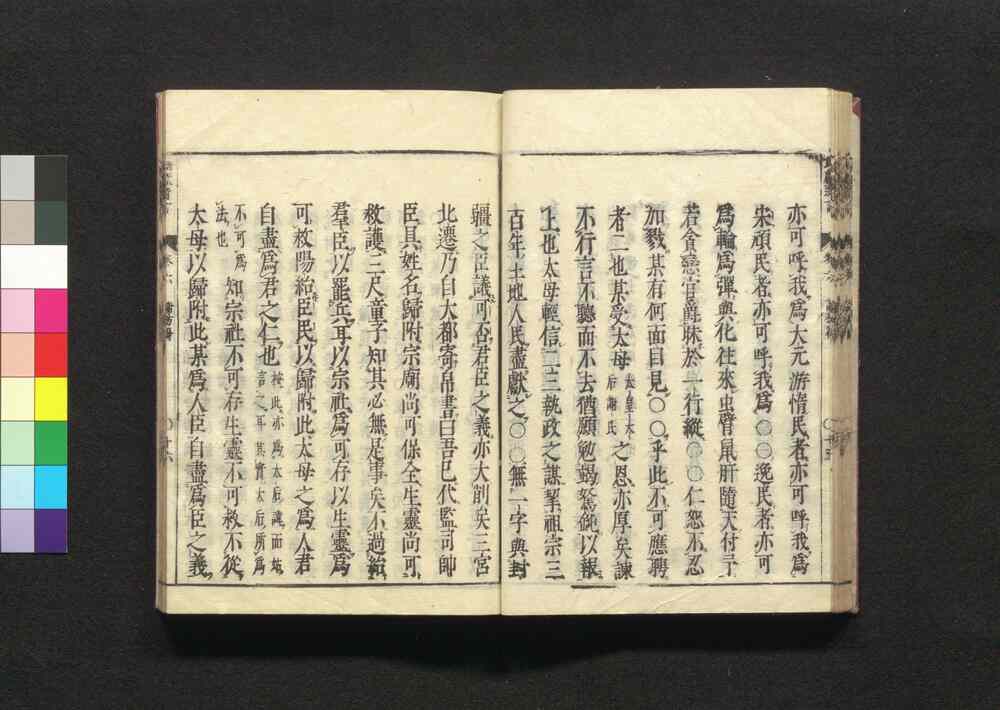 亦可呼我爲大元游惰民者亦可呼我爲
宋頑民者亦可呼我爲〇〇〇逸民者亦可
爲輪爲彈與化往來虫臂鼠肝隨天付予
若貪戀官爵昧於一行縱〇〇仁恕不忍
加戮某有何面目見〇〇乎此不可應聘
者二也某受太母太皇太后謝氏之恩亦厚矣諫
不行言不聽而不去猶願勉竭駑鈍以報
上也太母輕信二三執政之謀挈祖宗三
百年土地人民盡獻之〇〇無一字與封
疆之臣議可否君臣之義亦大削矣三宮
北遷乃自大都寄帛書曰吾已代監司帥
臣具姓名歸附宗廟尚可保全生靈尚可
救護三尺童子知其必無是事矣不過紿
羣臣以罷兵耳以宗社爲可存以生靈爲
可救陽紿臣民以歸附此太母之爲人君
自盡爲君之仁也按此亦爲本庭諱而姑言之耳其實太后所爲
不可爲法也知宗社不可存生靈不可救不從
太母以歸附此某爲人臣自盡爲臣之義
卷六
十六